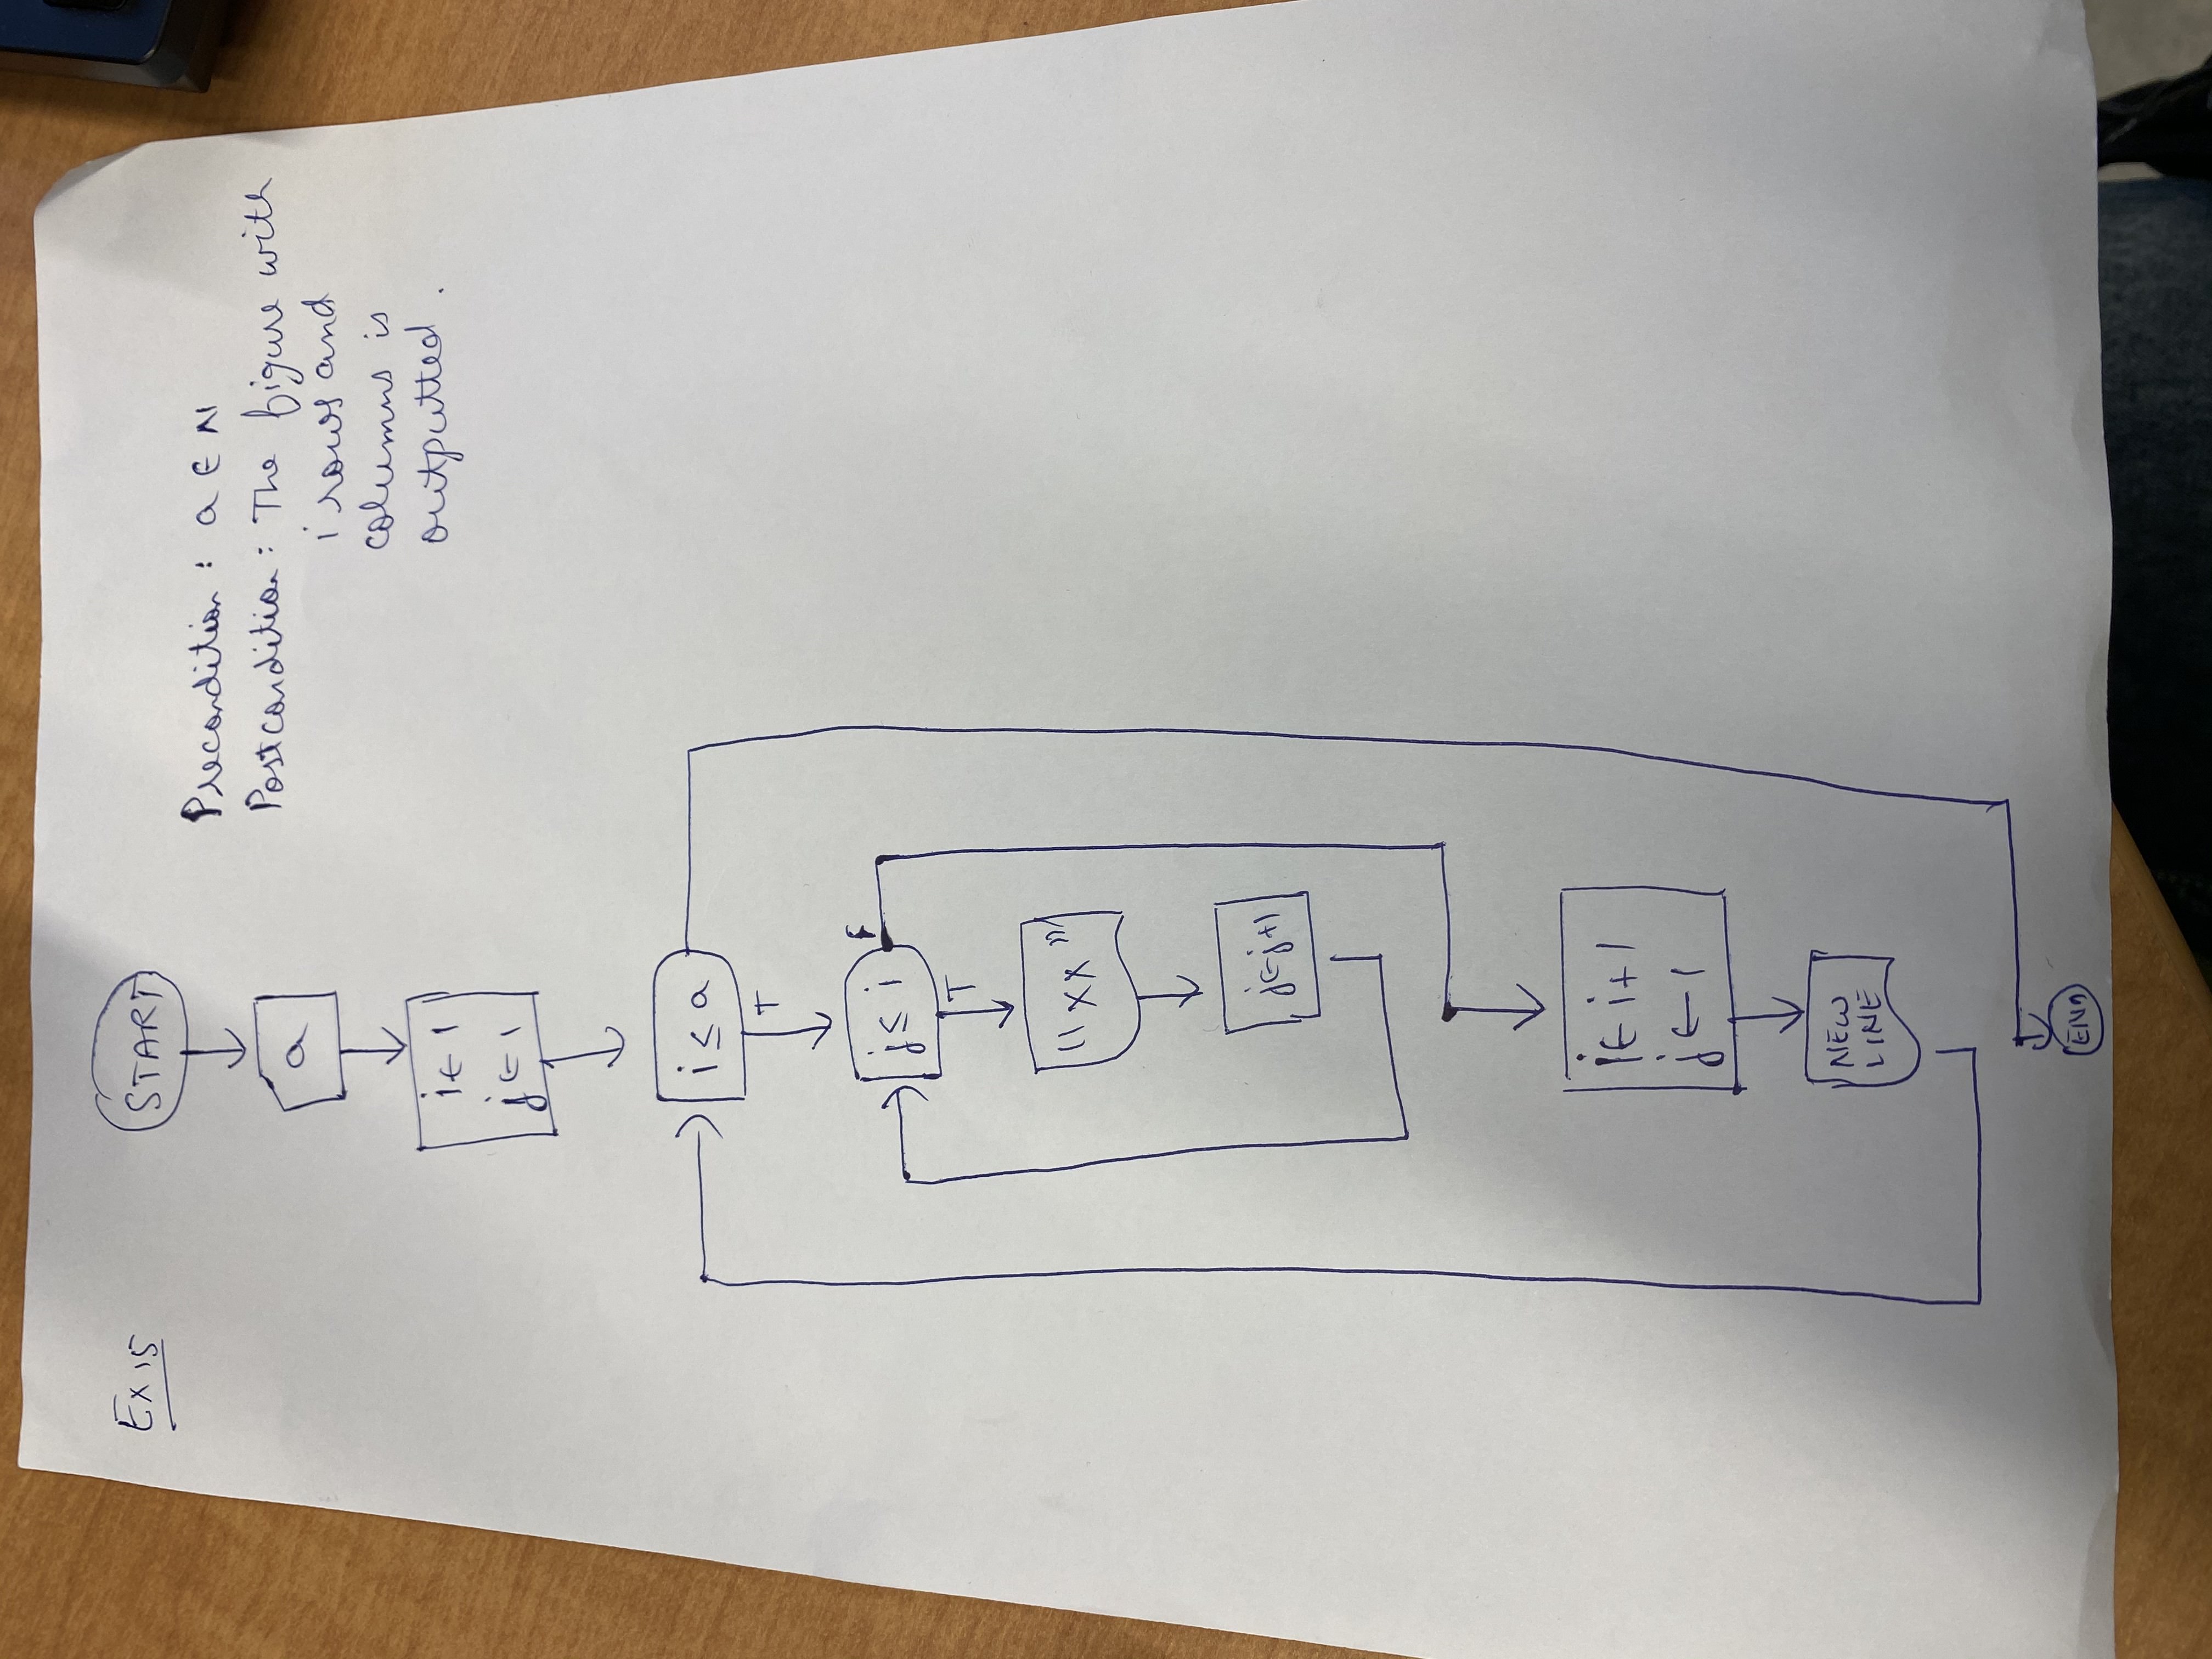 Ex 15
START
Precondition : a ∈ N
Postcondition : The figure with
i rows and
columns is
outputted.
a
i ← 1
j ← 1
i ≤ a
T
j ≤ i
F
T
"xx"
j ← j+1
i ← i+1
j ← 1
NEW
LINE
END